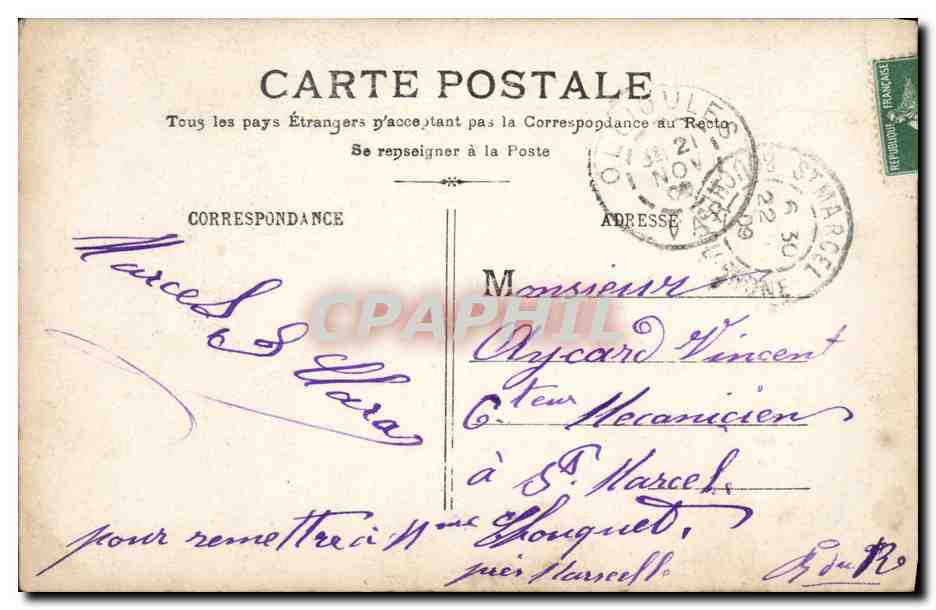 CARTE POSTALE
Tous les pays Étrangers n'acceptant pas la Correspondance au Recto
Se renseigner à la Poste
OLLIOULES
21
NOV
VAR
ST MARCEL
6 30
22
09
REPUBLIQUE FRANÇAISE
CORRESPONDANCE
ADRESSE
CPAPHIL
Marcel
Monsieur
Aycard Vincent
Cteur Mecanicien
à St. Marcel.
pour remettre à Mme Chouquet,
près Marseill.
B du R